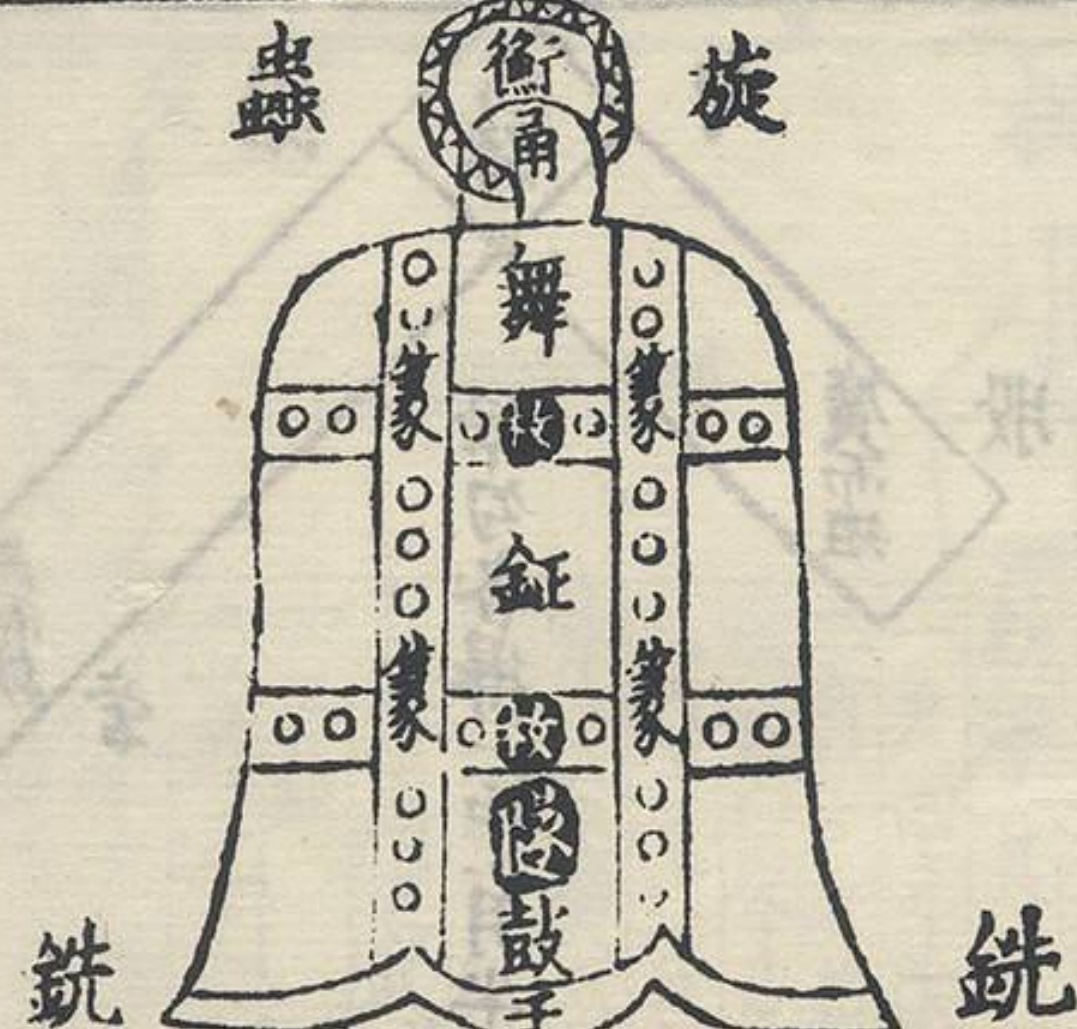 旋
衡
甬
蟲
舞
篆
篆
枚
鉦
篆
篆
枚
鼓
于
銑
銑